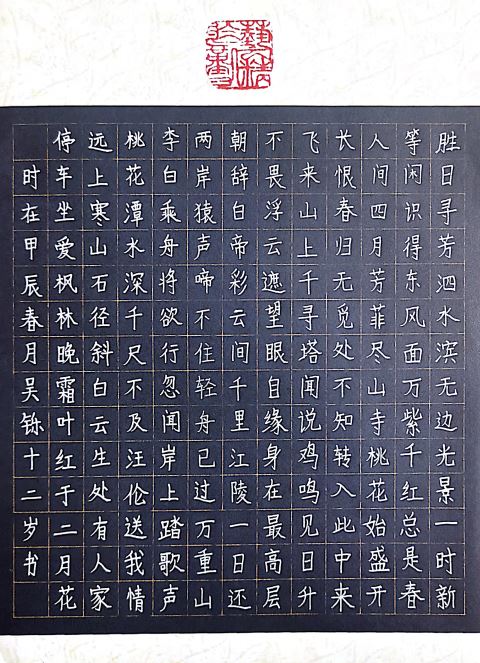 胜日寻芳泗水滨无边光景一时新
等闲识得东风面万紫千红总是春
人间四月芳菲尽山寺桃花始盛开
长恨春归无觅处不知转入此中来
飞来山上千寻塔闻说鸡鸣见日升
不畏浮云遮望眼自缘身在最高层
朝辞白帝彩云间千里江陵一日还
两岸猿声啼不住轻舟已过万重山
李白乘舟将欲行忽闻岸上踏歌声
桃花潭水深千尺不及汪伦送我情
远上寒山石径斜白云生处有人家
停车坐爱枫林晚霜叶红于二月花
时在甲辰春月吴铄十二岁书